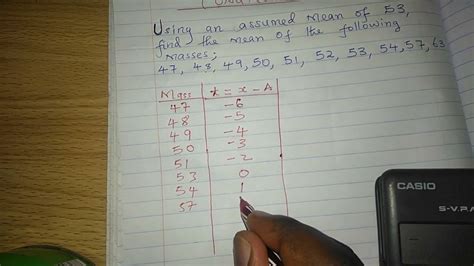 Using an assumed mean of 53,
find the mean of the following
masses;
47, 48, 49, 50, 51, 52, 53, 54, 57, 63
Mass t = x - A
47 -6
48 -5
49 -4
50 -3
51 -2
53 0
54 1
57
CASIO
S-V.P.A